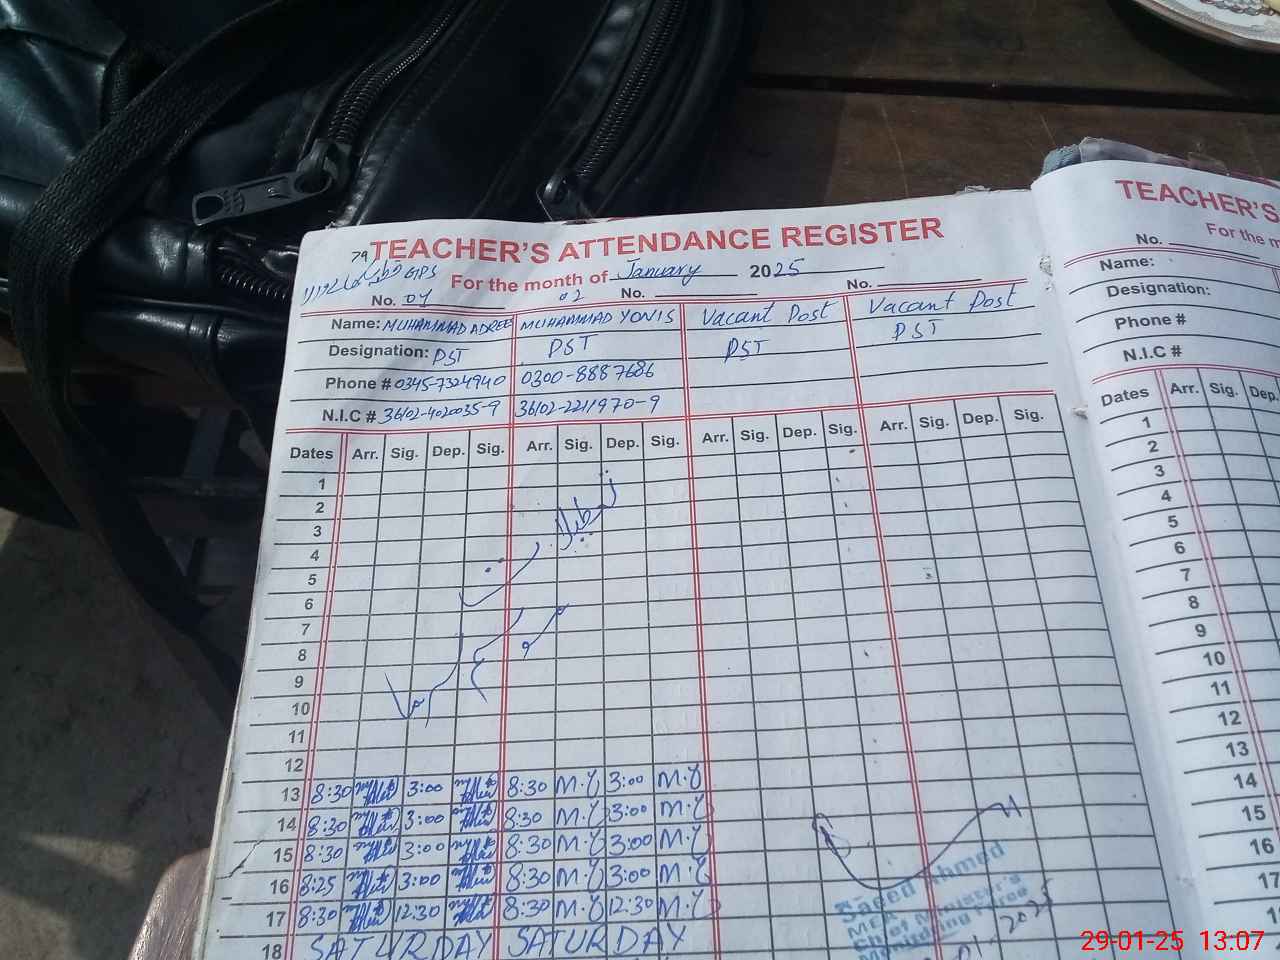 79 TEACHER'S ATTENDANCE REGISTER
GPS For the month of January 2025
No. 04 02 No. No.
Name: MUHAMMAD ADREES MUHAMMAD YONIS Vacant Post Vacant Post
Designation: PST PST PST PST
Phone # 0345-7324940 0300-8887686
N.I.C # 36102-4020035-9 36102-2211970-9
Dates Arr. Sig. Dep. Sig. Arr. Sig. Dep. Sig. Arr. Sig. Dep. Sig. Arr. Sig. Dep. Sig.
1
2
3
4
5
6
7
8
9
10
11
12
13 8:30 3:00 8:30 M.Y 3:00 M.Y
14 8:30 3:00 8:30 M.Y 3:00 M.Y
15 8:30 3:00 8:30 M.Y 3:00 M.Y
16 8:25 3:00 8:30 M.Y 3:00 M.Y
17 8:30 12:30 8:30 M.Y 12:30 M.Y
18 SATURDAY SATURDAY
Saeed Ahmed
MEA
Chief Minister's
Monitoring Force
2025
TEACHER'S
For the m
No.
Name:
Designation:
Phone #
N.I.C #
Dates Arr. Sig. Dep.
1
2
3
4
5
6
7
8
9
10
11
12
13
14
15
16
17
29-01-25 13:07